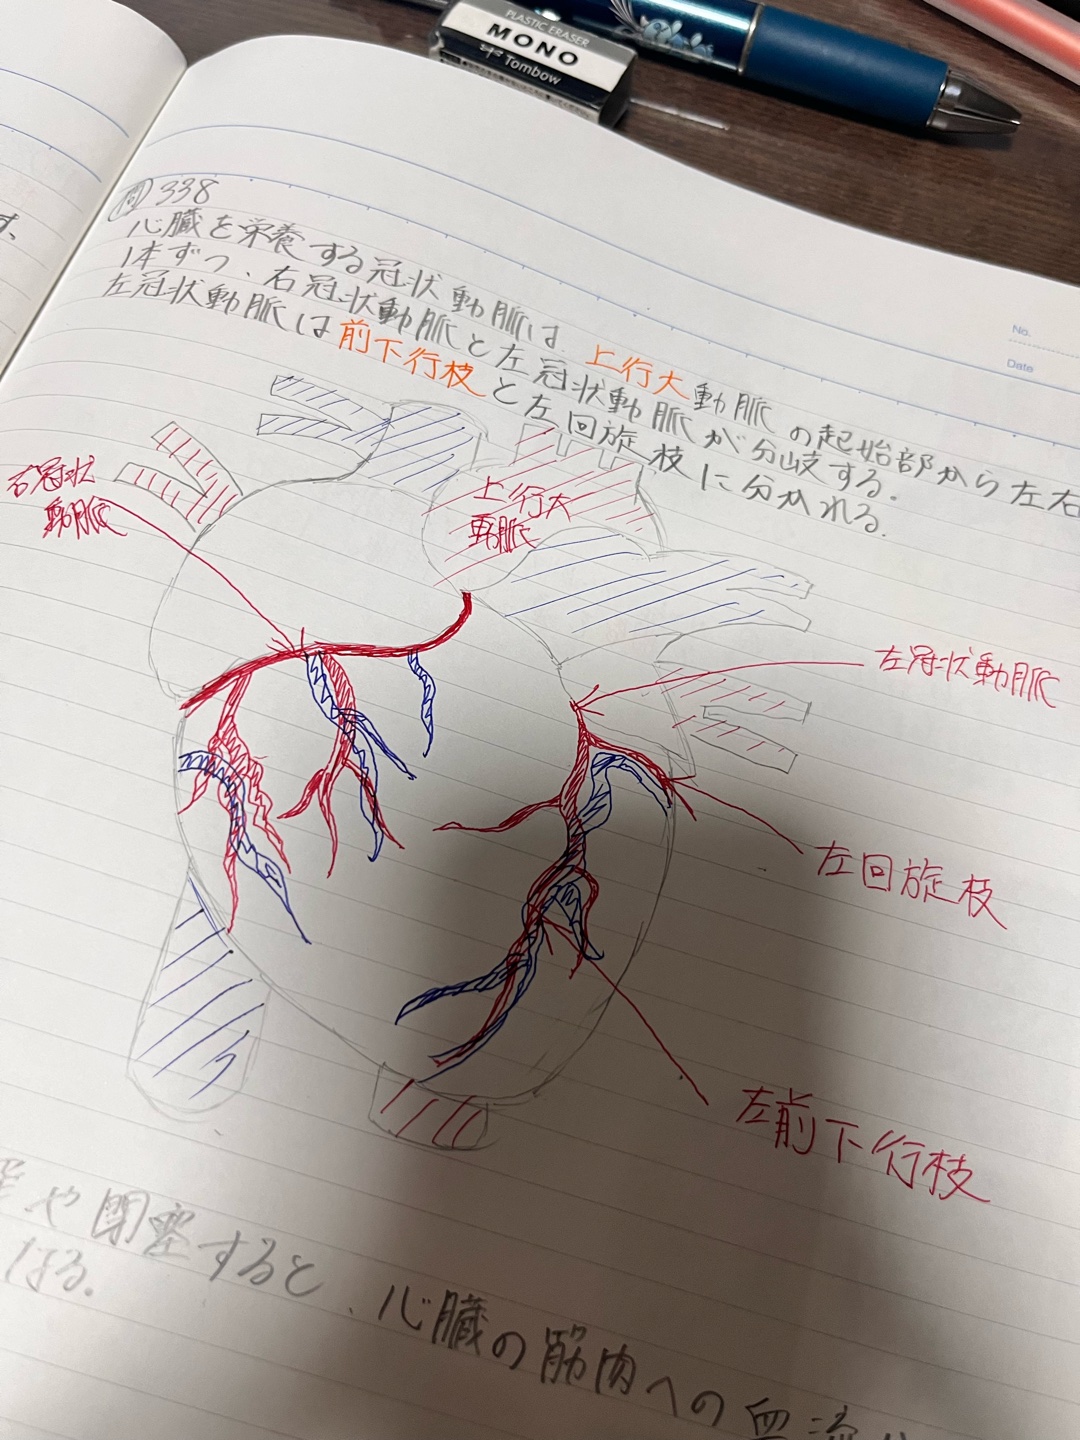 PLASTIC ERASER
MONO
Tombow
No.
Date
す、
問 338
心臓を栄養する冠状動脈は、上行大動脈の起始部から左右
1本ずつ、右冠状動脈と左冠状動脈が分岐する。
左冠状動脈は前下行枝と左回旋枝に分かれる。
右冠状
動脈
上行大
動脈
左冠状動脈
左回旋枝
左前下行枝
や閉塞すると、心臓の筋肉への血流
なる。